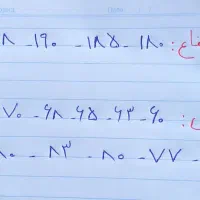 فاع: ۱۸۰ - ۱۸۵ - ۱۹۰ - ۸
۶۰ - ۶۳ - ۶۵ - ۶۸ - ۷۰
- ۷۷ - ۸۰ - ۸۳ -